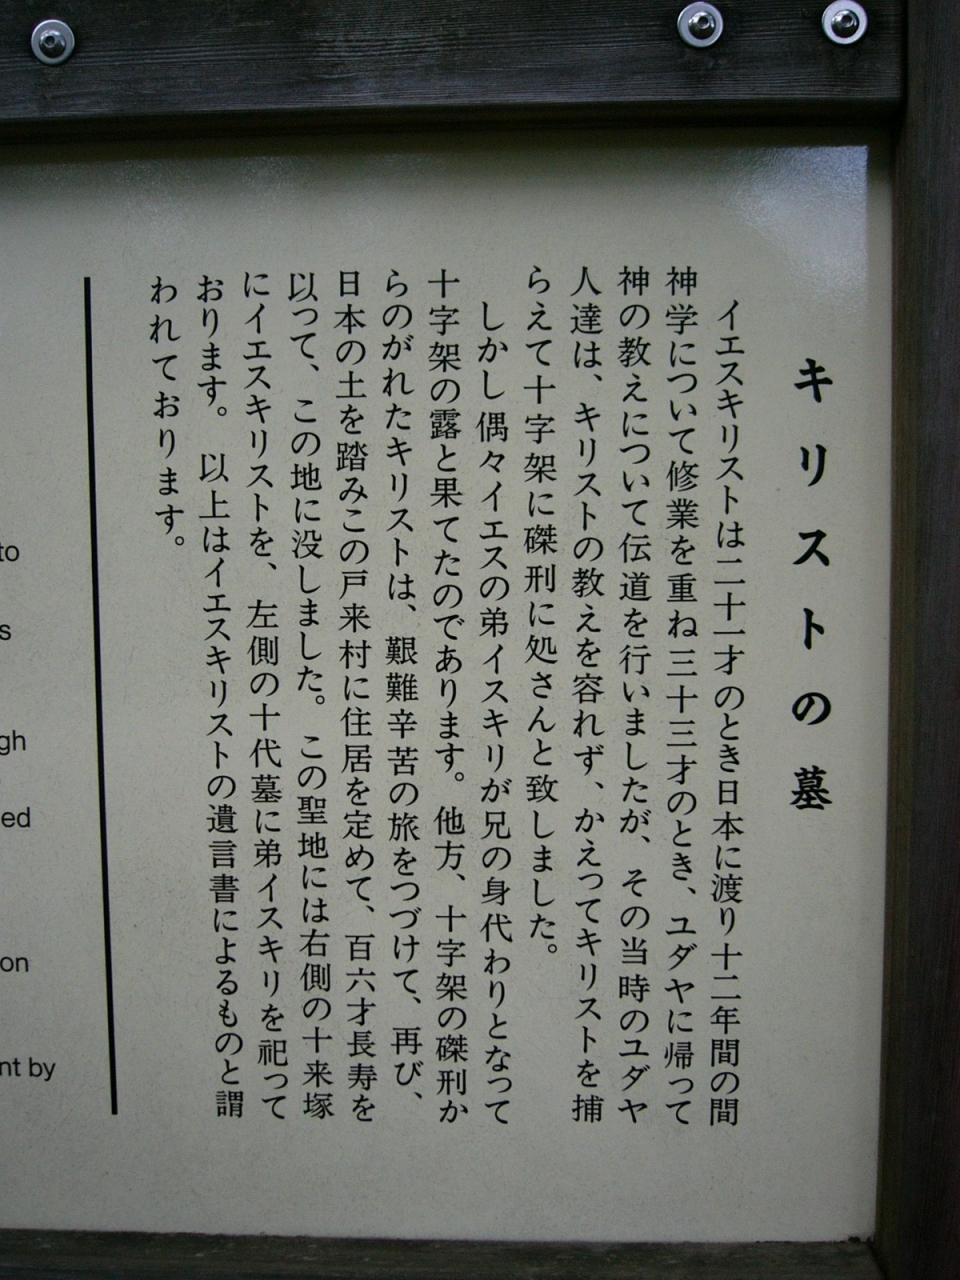 キリストの墓
イエスキリストは二十一才のとき日本に渡り十二年間の間
神学について修業を重ね三十三才のとき、ユダヤに帰って
神の教えについて伝道を行いましたが、その当時のユダヤ
人達は、キリストの教えを容れず、かえってキリストを捕
らえて十字架に磔刑に処さんと致しました。
しかし偶々イエスの弟イスキリが兄の身代わりとなって
十字架の露と果てたのであります。他方、十字架の磔刑か
らのがれたキリストは、艱難辛苦の旅をつづけて、再び、
日本の土を踏みこの戸来村に住居を定めて、百六才長寿を
以って、この地に没しました。この聖地には右側の十来塚
にイエスキリストを、左側の十代墓に弟イスキリを祀って
おります。以上はイエスキリストの遺言書によるものと謂
われております。
to
s
gh
ed
on
nt by